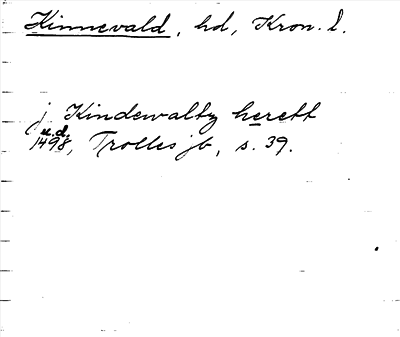 Kinnevald, hd, Kron. l.
j Kindewaltz herett
u.d.
1498, Trolles jb, s. 39.